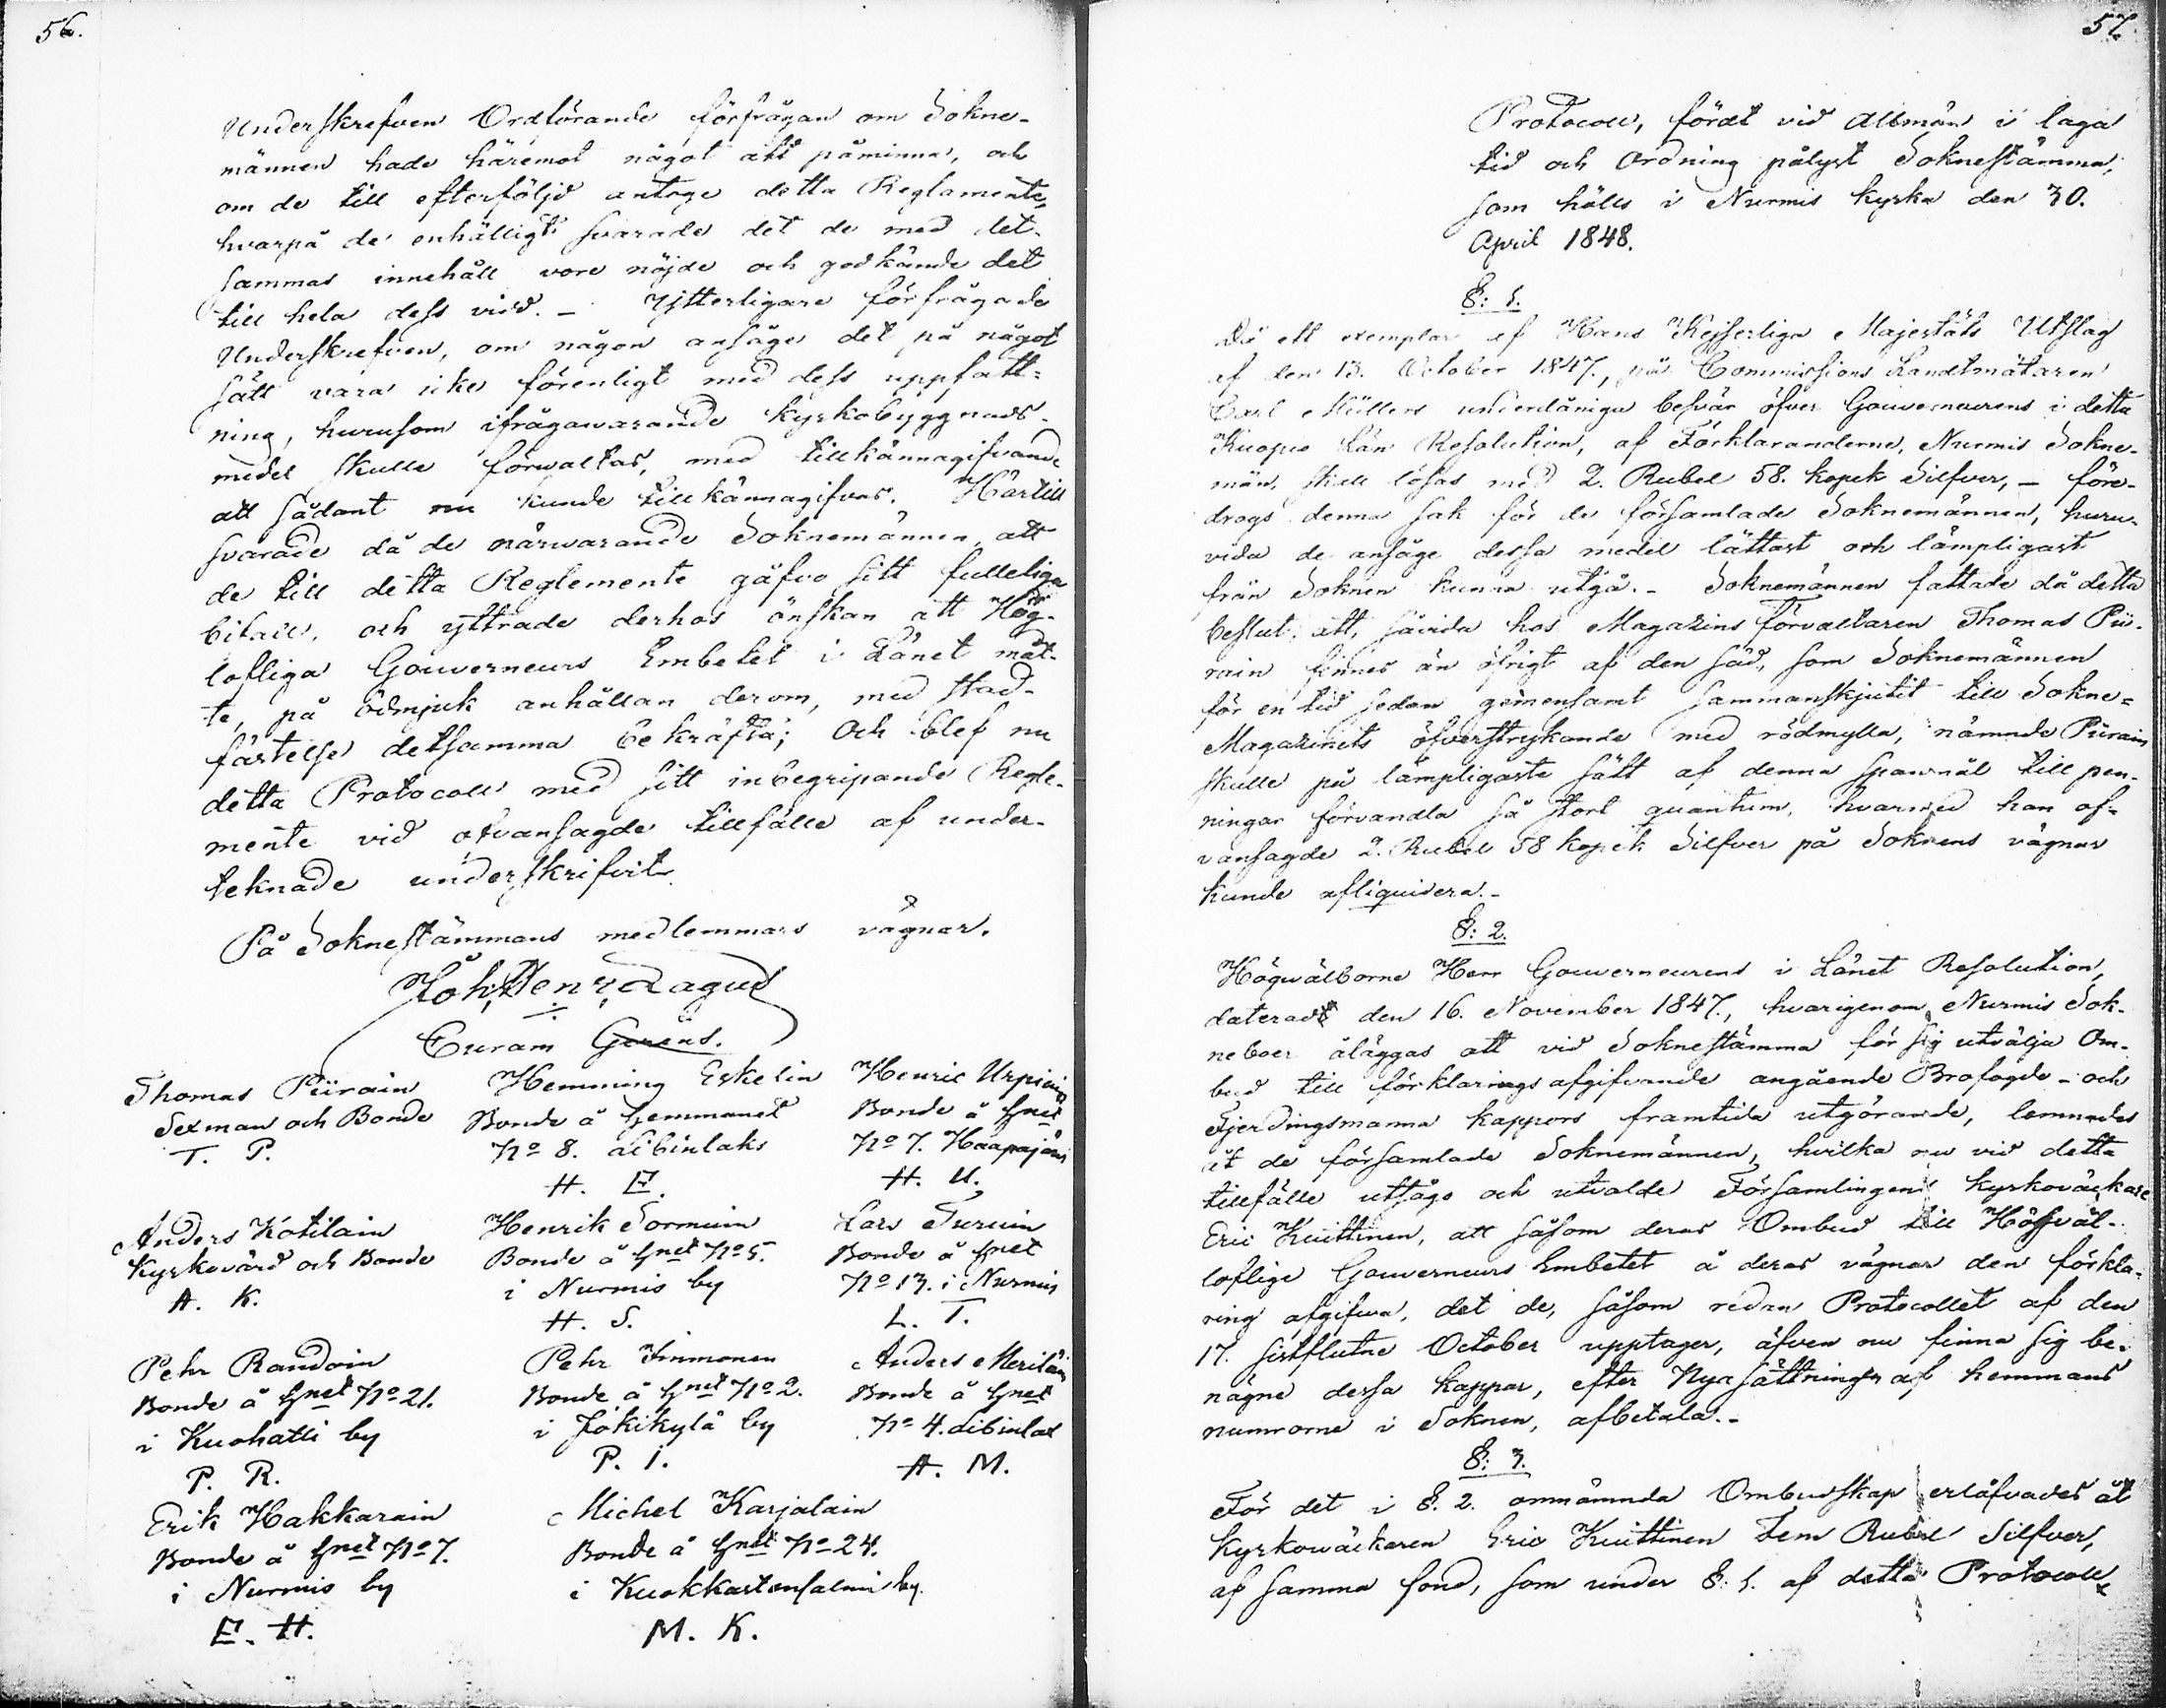 56.
Underskrefven Ordförande förfrågan om Sokne-
männen hade häremot något att påminna, och
om de till efterföljd antoge detta Reglamente,
hvarpå de enhälligt svarade det de med det-
sammas innehåll vore nöjde och godkände det
till hela dess vidd. - Ytterligare förfrågade
Underskrefven, om någon ansåge det på något
sätt vara icke förenligt med dess uppfatt-
ning, hurusom ifrågawarande kyrkobyggnads-
medel skulle förwaltas, med tillkännagifvande
att sådant nu kunde tillkännagifvas. Härtill
svarade då de närwarande Soknemännen att
de till detta Reglemente gåfvo sitt fulleliga
bifall, och yttrade derhos önskan att Hög-
lofliga Gouverneurs Embetet i Länet måt-
te, på ödmjuk anhållan derom, med stad-
fästelse detsamma bekräfta; Och blef nu
detta Protocoll med sitt inbegripande Regle-
mente vid ofvansagde tillfälle af under-
teknade underskrifvit.
På Soknestämmans medlemmars vägnar.
Joh. Henr. Lagus
Curam Gerens.
Thomas Piirain Hemming Eskelin Henric Urpiain
Sexman och Bonde Bonde å hemmanet Bonde å hnet
T. P. No 8. Libinlaks No 7. Haapajärvi
H. E. H. U.
Anders Kotilain Henrik Sormuin Lars Turuin
Kyrkovärd och Bonde Bonde å hnet No 5. Bonde å hnet
A. K. i Nurmis by No 13. i Nurmis
H. S. L. T.
Pehr Raudoin Pehr Immonen Anders Meriläin
Bonde å hnet No 21. Bonde å hnet No 2. Bonde å hnet
i Kuohatti by i Jokikylä by No 4. Libinlax
P. R. P. I. A. M.
Erik Hakkarain Michel Karjalain
Bonde å hnet No 7. Bonde å hnet No 24.
i Nurmis by i Kuokkastensalmi by.
E. H. M. K.
57.
Protocoll, fördt vid Allmän i laga
tid och Ordning pålyst Soknestämma,
som hålls i Nurmis kyrka den 30.
April 1848.
§: 1.
Då ett exemplar af Hans Kejserliga Majestäts Utslag
af den 13. October 1847., på Commissions Landtmätaren
Carl Müllers underdåniga besvär öfver Gouverneurens i detta
Kuopio Län Resolution, af Förklaranderne, Nurmis Sokne-
män, skall lösas med 2. Rubel 58. kopek Silfver, - före-
drogs denna sak för de församlade Soknemännen, huru-
vida de ansåge dessa medel lättast och lämpligast
från Soknen kunna utgå. - Soknemännen fattade då detta
beslut: att, såvida hos Magazins Förvaltaren Thomas Pii-
rain finnes än öfrigt af den säd, som Soknemännen
för en tid sedan gemensamt sammanskjutit till Sokne-
Magazinets öfverstrykande med rödmylla, nämnde Piirain
skulle på lämpligaste sätt af denna spanmål till pen-
ningar förvandla så stort quantum, hvarmed han of-
vansagde 2. Rubel 58 kopek Silfver på Soknens vägnar
kunde afliquidera. -
§: 2.
Högvälborne Herr Gouverneurens i Länet Resolution,
daterad den 16. November 1847., hvarigenom Nurmis Sok-
neboer åläggas att vid Soknestämma för sig utvälja Om-
bud till förklarings afgifvande angående Brofogde - och
Fjerdingsmanna kappors framtida utgörande, lemnades
åt de församlade Soknemännen, hvilka nu vid detta
tillfälle utsågo och utvalde Församlingens kyrkoväckare
Eric Kuittinen, att såsom deras Ombud till Högväl-
loflige Gouverneurs Embetet å deras vägnar den förkla-
ring afgifva, det de, såsom redan Protocollet af den
17. sistflutne October upptager, äfven nu finna sig be-
nägne dessa kappor, efter Nya sättningen af hemmans
numrorne i Soknen, afbetala. -
§: 3.
För det i §. 2. omnämnda Ombudskap erläfvades åt
kyrkowäckaren Eric Kuittinen Fem Rubel Silfver,
af samma fond, som under §: 1. af detta Protocoll